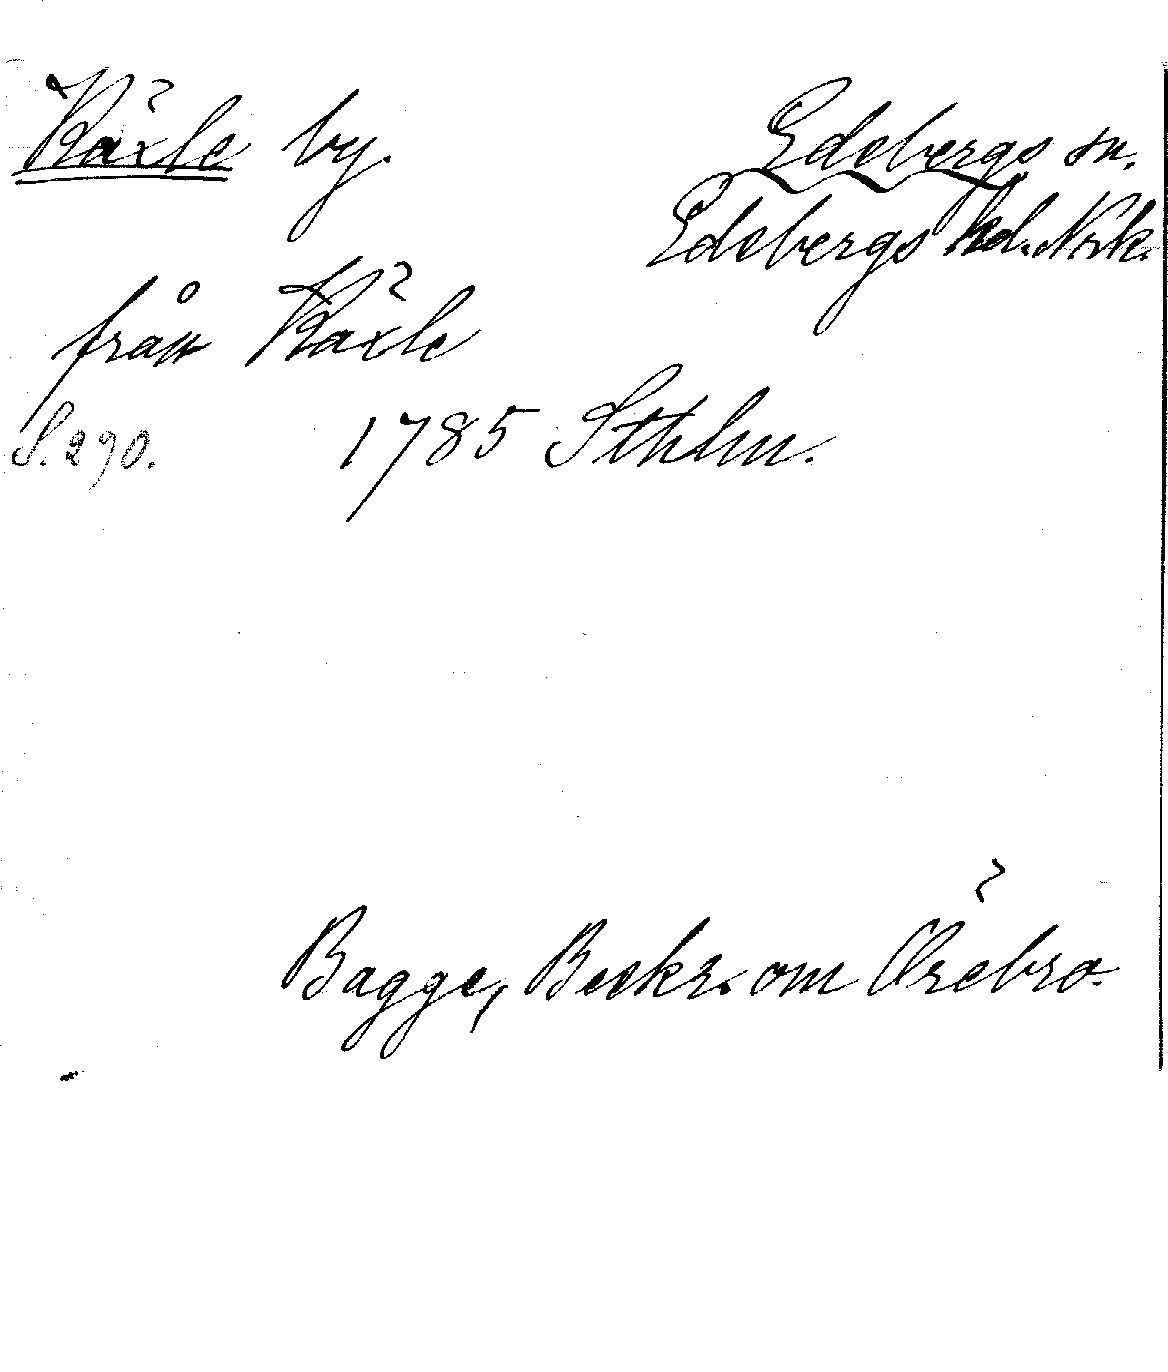 Käxle by. Edebergs sn.
Edebergs hd. Nrk.
från Käxle
S. 290. 1785 Sthlm.
Bagge, Beskr. om Örebro.